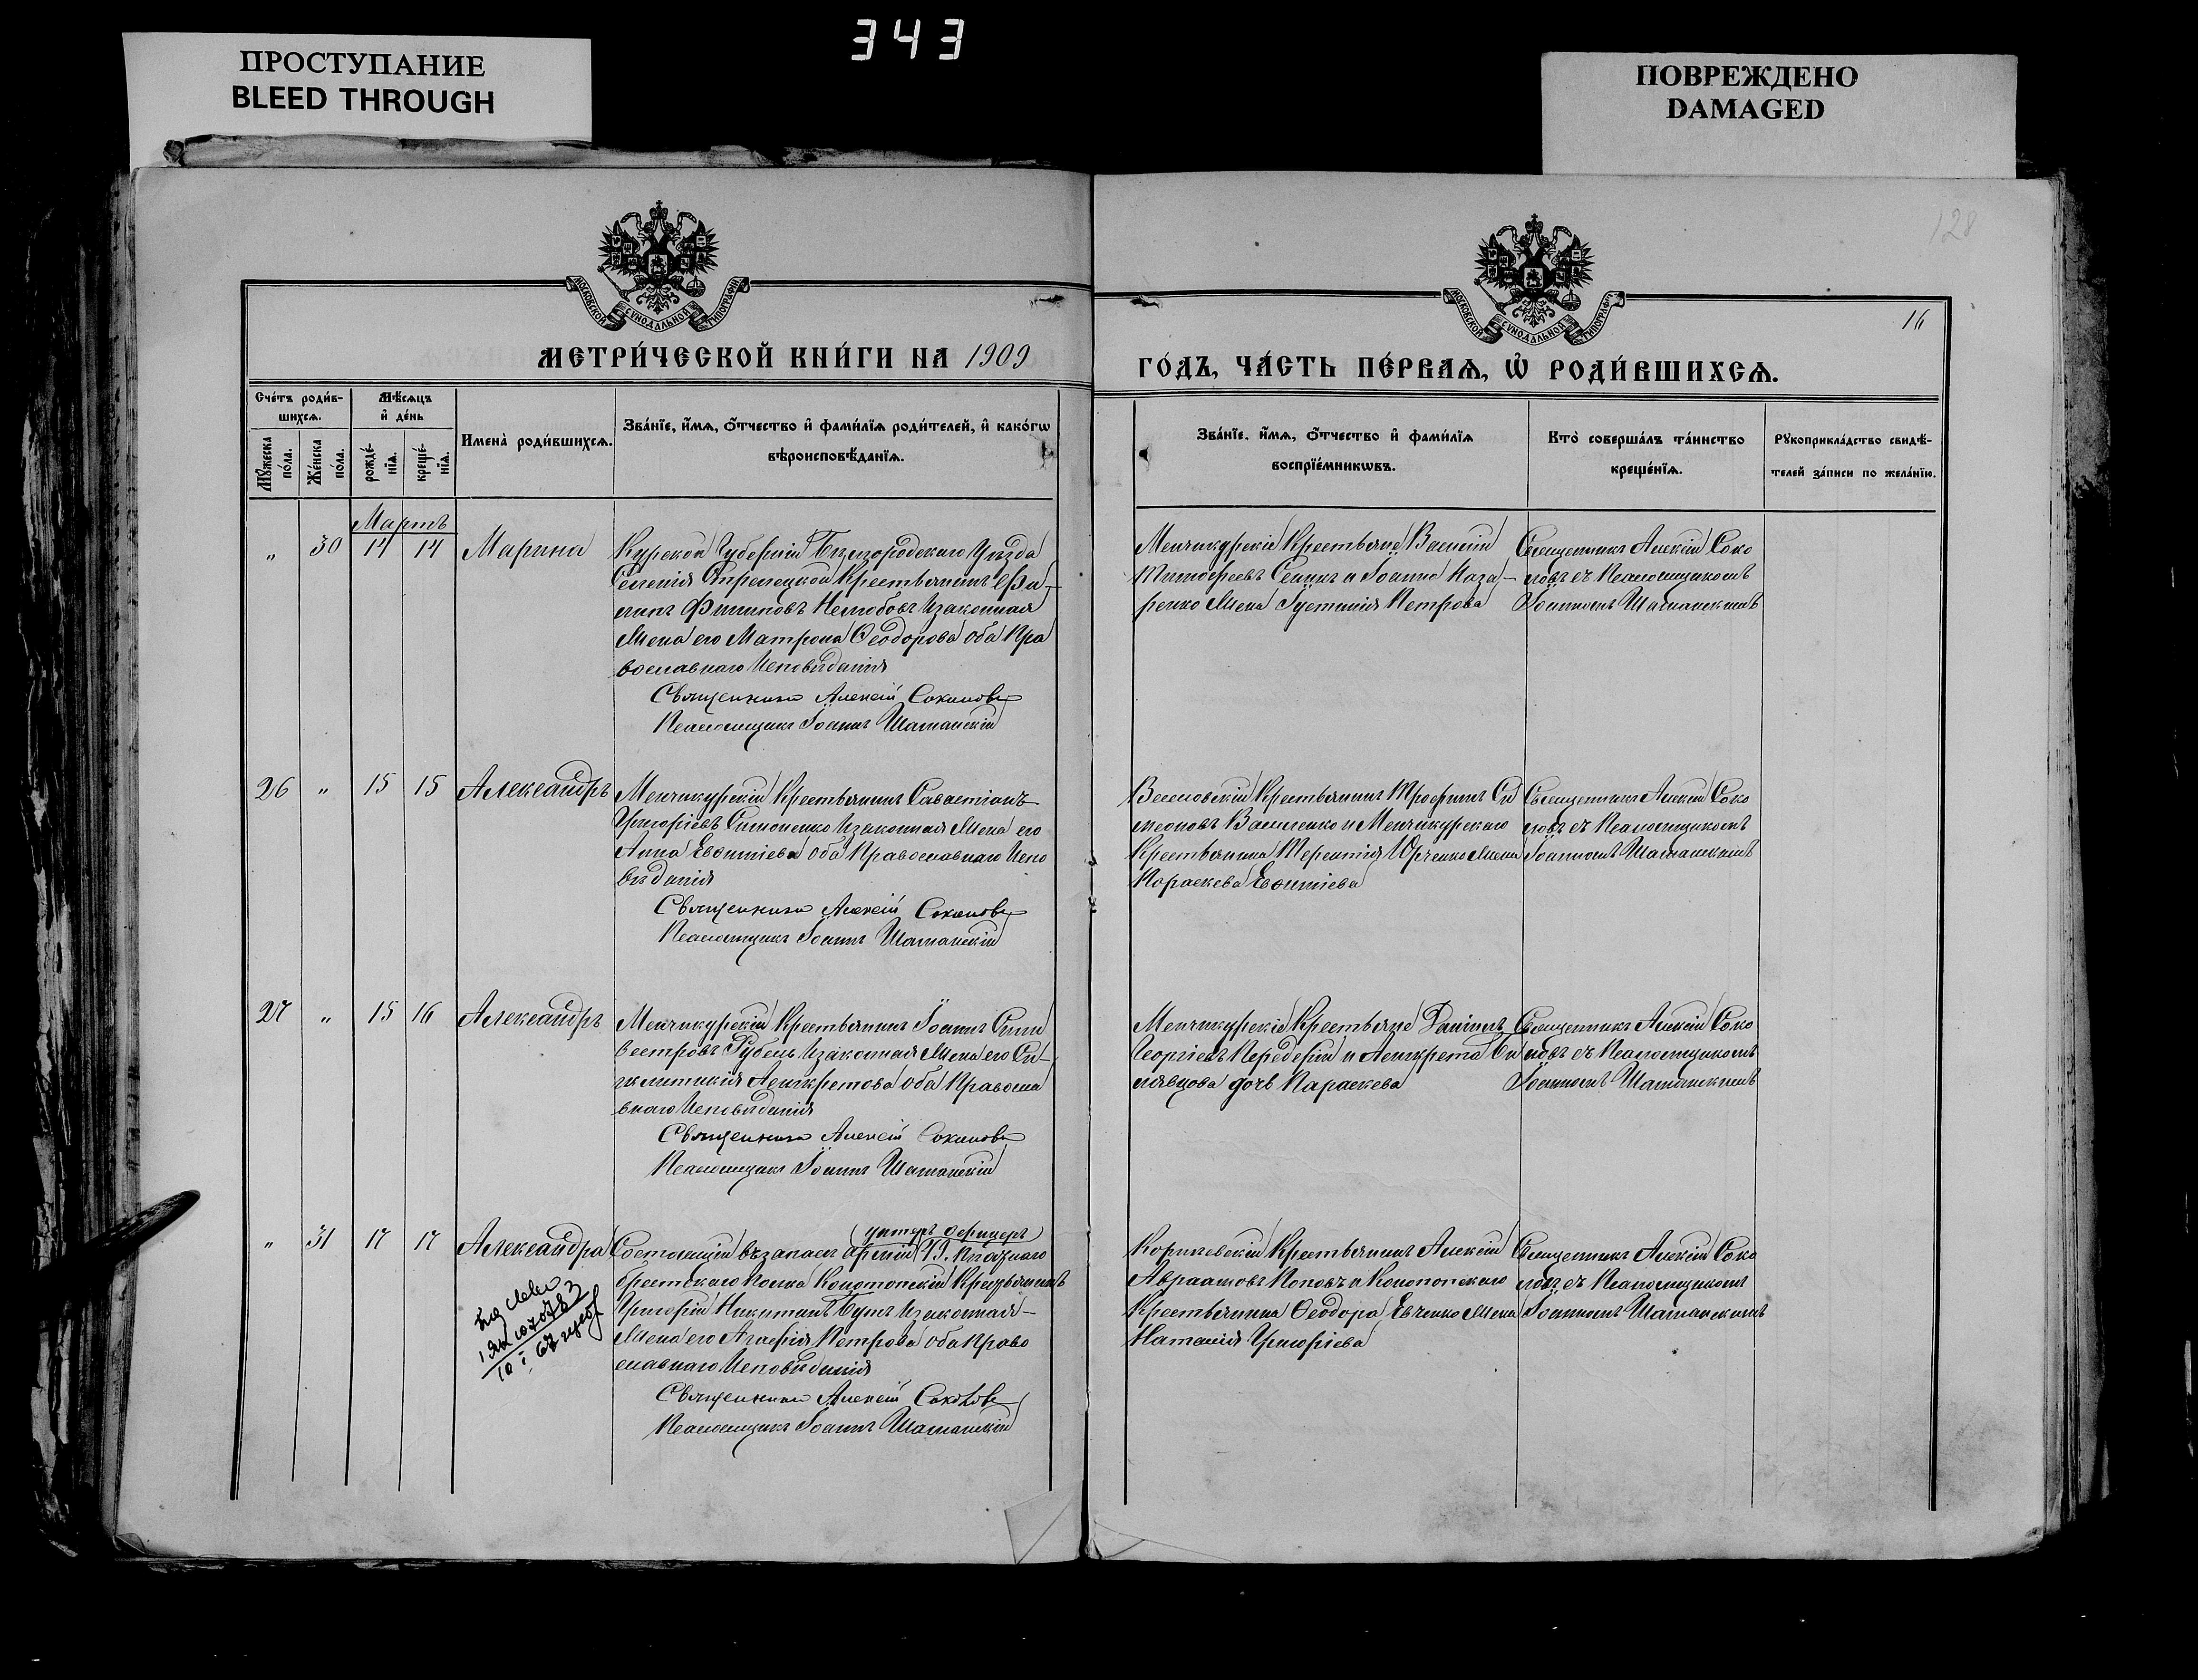 343
ПРОСТУПАНИЕ
BLEED THROUGH
ПОВРЕЖДЕНО
DAMAGED
128
16
МОСКОВСКОЙ СѴНОДАЛЬНОЙ ТИПОГРАФІИ
МЕТРИ́ЧЕСКОЙ КНИ́ГИ НА 1909
МОСКОВСКОЙ СѴНОДАЛЬНОЙ ТИПОГРАФІИ
ГО́ДЪ, ЧА́СТЬ ПЕ́РВАѦ, Ѡ҆ РОДИ́ВШИХСѦ.
Сче́тъ роди́в-
шихсѧ.
Мѣ́сѧцъ
и҆ де́нь
Мꙋ́жеска
по́ла.
Же́нска
по́ла.
рожде́-
нїѧ.
креще́-
нїѧ.
Имена̀ роди́вшихсѧ.
Зва́нїе, и҆́мѧ, ѻ҆́тчество и҆ фами́лїѧ роди́телей, и҆ како́гѡ
вѣроисповѣ́данїѧ.
Зва́нїе, и҆́мѧ, ѻ҆́тчество и҆ фами́лїѧ
воспрїе́мникѡвъ.
Кто̀ соверша́лъ та́инство
креще́нїѧ.
Рꙋкоприкла́дство свидѣ́-
телей за́писи по жела́нїю.
Мартъ
„ 30 14 14 Марина
Курской Губерніи Бѣлгородскаго Уѣзда
Селенія Стрелецкой Крестьянинъ Фи-
липъ Филиповъ Изаконная
Жена его Матрона Ѳеодорова оба Пра
вославнаго Исповѣданія
Священникъ Алексій Соколовъ
Псаломщикъ Іоаннъ Шаманскій
Менчикурскіе Крестьяне Василій
Тимофеевъ и Іоанна Наза-
ренко Жена Іустинія Петрова
Священникъ Алексій Соко
ловъ съ Псаломщикомъ
Іоанномъ Шаманскимъ
26 „ 15 15 Александръ
Менчикурскій Крестьянинъ Савастіанъ
Григоріевъ Симоненко Изаконная Жена его
Анна Евѳиміева оба Православнаго Испо
вѣданія
Священникъ Алексій Соколовъ
Псаломщикъ Іоаннъ Шаманскій
Веселовскій Крестьянинъ Трофимъ Си
меоновъ Василенко и Менчикурскаго
Крестьянина Терентія Юрченко Жена
Параскева Евѳиміева
Священникъ Алексій Соко
ловъ съ Псаломщикомъ
Іоанномъ Шаманскимъ
27 „ 15 16 Александръ
Менчикурскій Крестьянинъ Іоаннъ Сили
вестровъ Рубель Изаконная Жена его Си-
нклитикія Асигкретова оба Правосла
внаго Исповѣданія
Священникъ Алексій Соколовъ
Псаломщикъ Іоаннъ Шаманскій
Менчикурскіе Крестьяне Даніилъ
Георгіевъ Передерій и Асигкрета Би
лявцова дочь Параскева
Священникъ Алексій Соко
ловъ съ Псаломщикомъ
Іоанномъ Шаманскимъ
„ 31 17 17 Александра
унтеръ офицеръ
Состоящій въ запасѣ арміи Пѣхотнаго
Брестскаго Полка Конотопскій Крестьянинъ
Григорій Никитинъ Бутъ Изаконная
Жена его Агафія Петрова оба Право
славнаго Исповѣданія
Священникъ Алексій Соколовъ
Псаломщикъ Іоаннъ Шаманскій
Крестьянинъ Алексій
Авраамовъ Поповъ и Конотопскаго
Крестьянина Ѳеодора Евченко Жена
Наталія Григоріева
Священникъ Алексій Соко
ловъ съ Псаломщикомъ
Іоанномъ Шаманскимъ